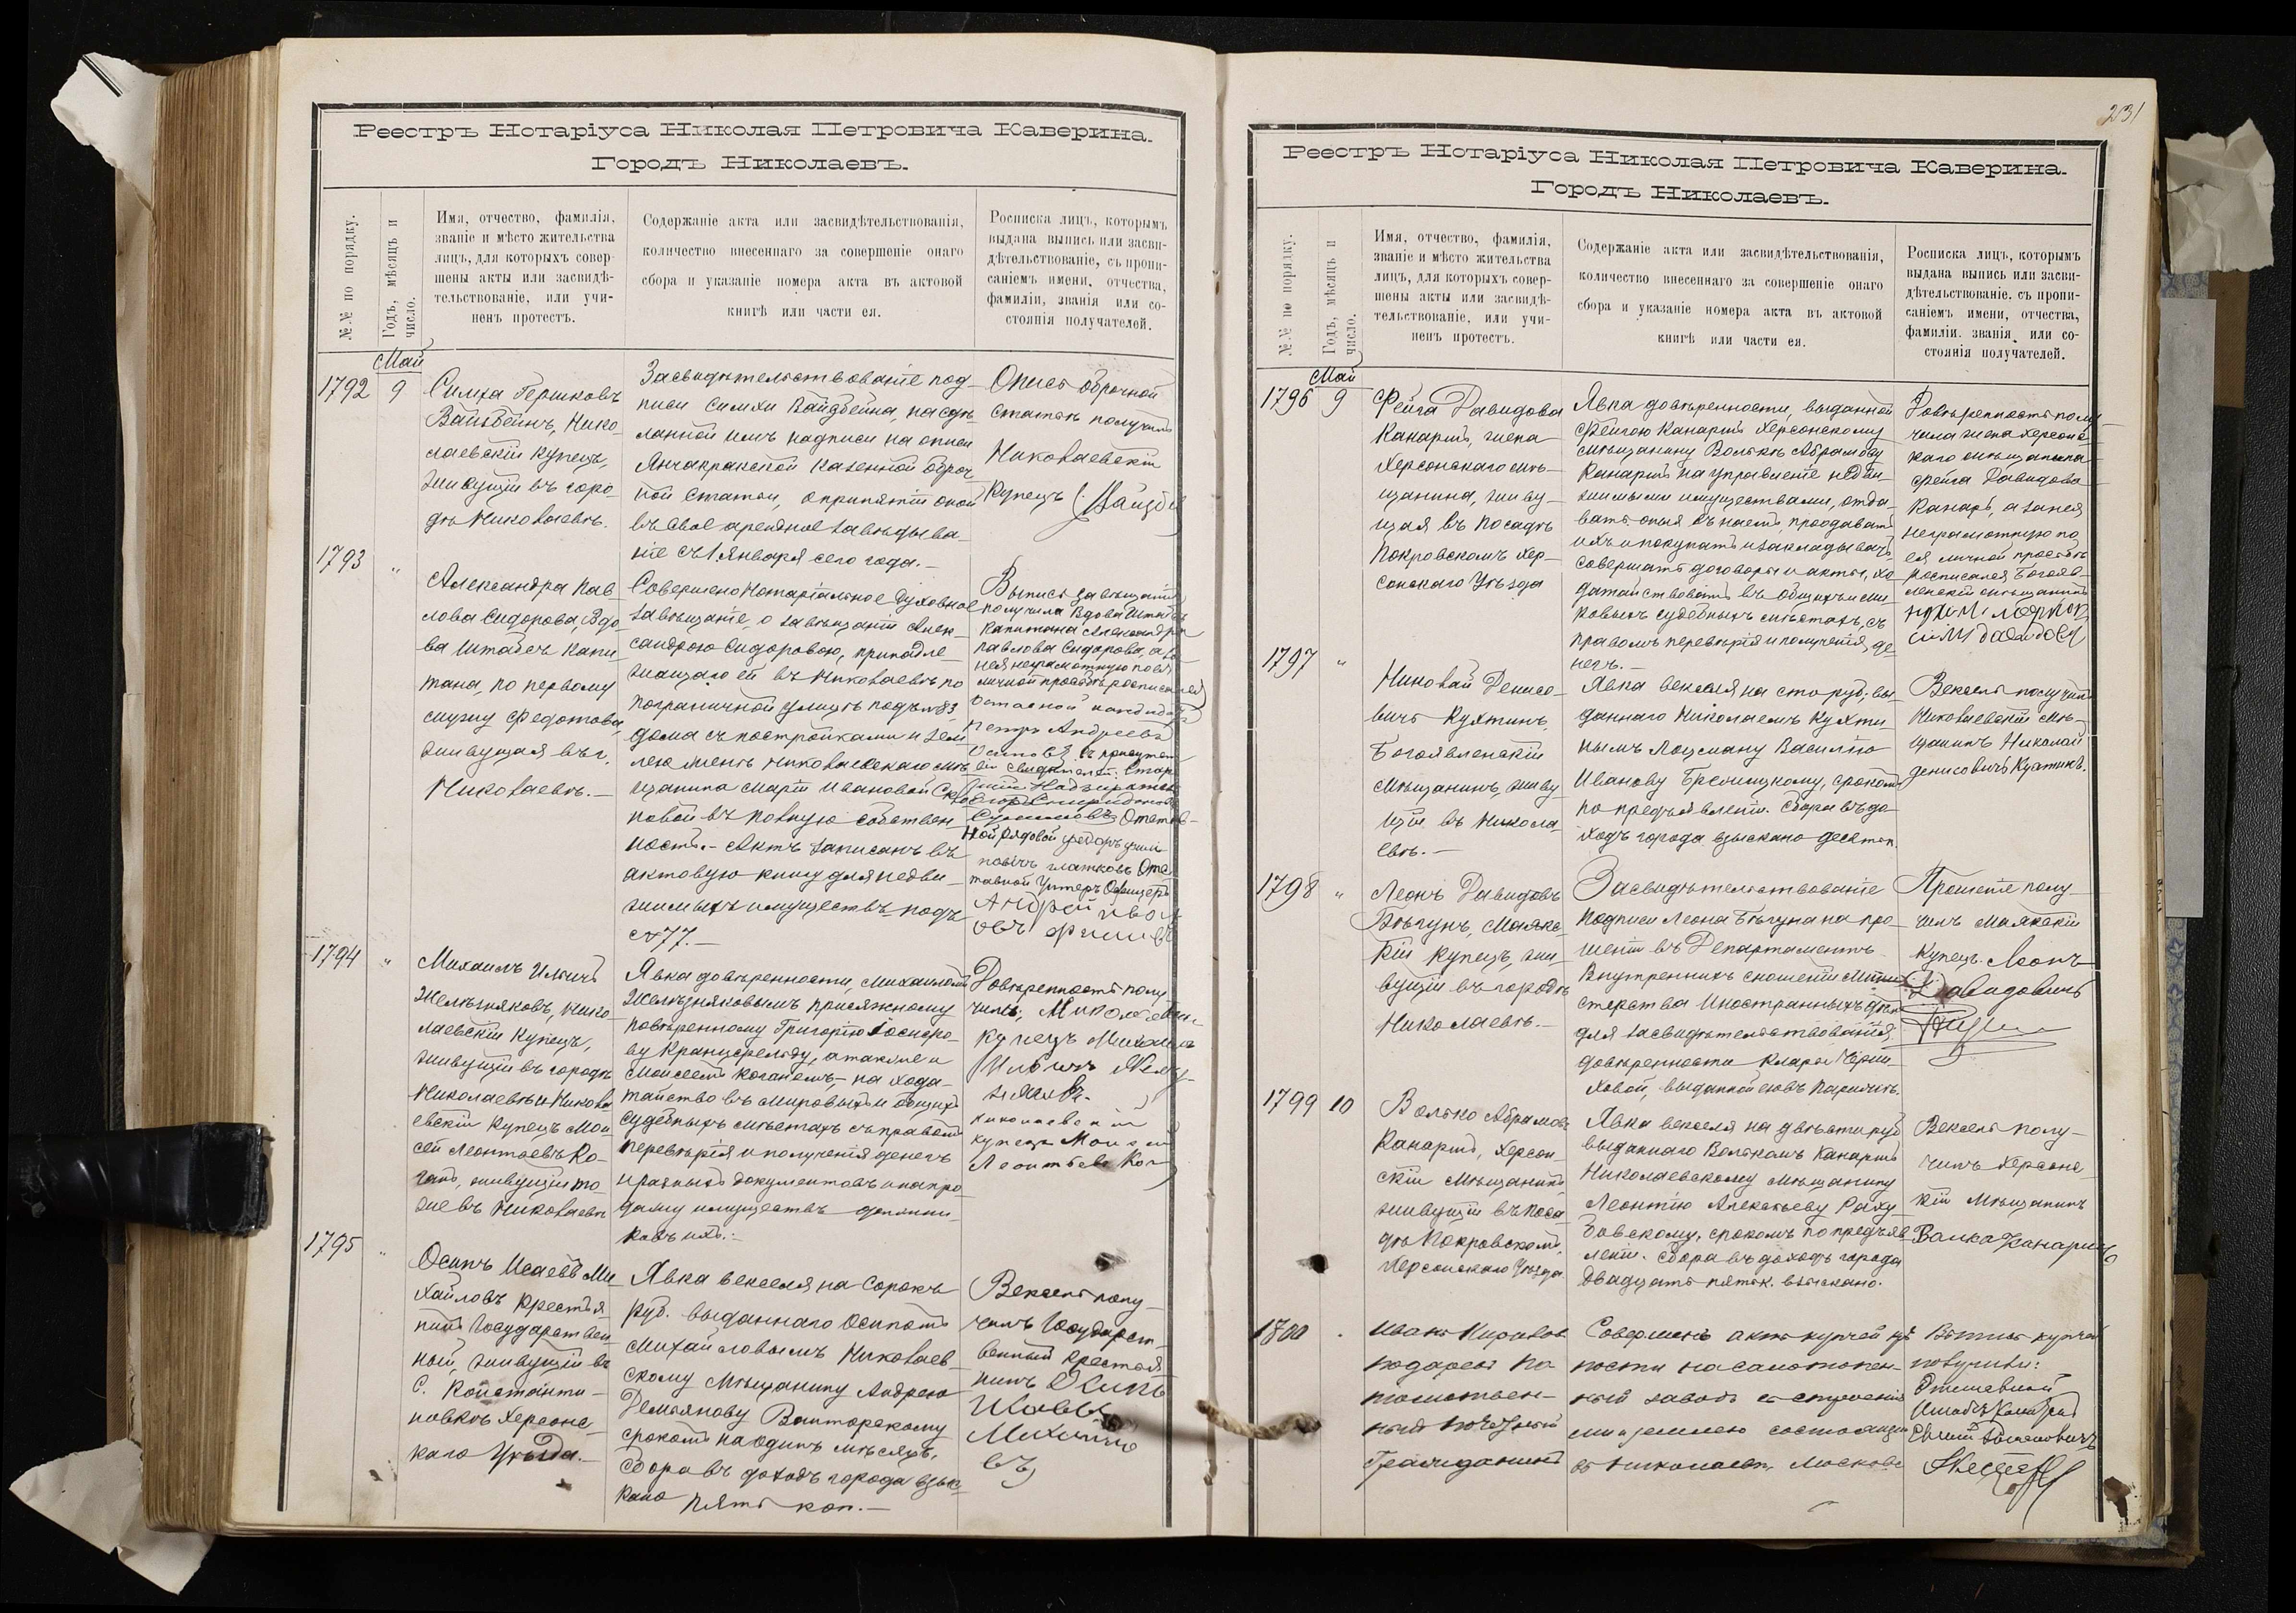 Реестръ Нотаріуса Николая Петровича Каверина.
Городъ Николаевъ.
№№ по порядку.
Годъ, мѣсяцъ и число.
Имя, отчество, фамилія,
званіе и мѣсто жительства
лицъ, для которыхъ совер-
шены акты или засвидѣ-
тельствованіе, или учи-
ненъ протестъ.
Содержаніе акта или засвидѣтельствованія,
количество внесеннаго за совершеніе онаго
сбора и указаніе номера акта въ актовой
книгѣ или части ея.
Росписка лицъ, которымъ
выдана выпись или засви-
дѣтельствованіе, съ пропи-
саніемъ имени, отчества,
фамиліи, званія или со-
стоянія получателей.
Май
1792
9
Симха Гершковъ
Вайсбейнъ, Нико-
лаевскій купецъ,
живущій въ горо-
дѣ Николаевѣ.
Засвидѣтельствованіе под-
писи Симхи Вайсбейна, на сдѣ-
ланной имъ надписи на описи
казенной оброч
ной статьи, о принятіи оной
въ свое арендное завѣдыва-
ніе съ 1 января сего года.-
Опись оброчной
статьи получилъ
Николаевскій
купецъ
1793
"
Александра Пав-
лова Сидорова, вдо-
ва Штабсъ Капи
тана, по первому
мужу Федотова,
живущая въ г.
Николаевѣ.-
Совершено Нотаріальное духовное
завѣщаніе, о завѣщаніи Алек-
сандрою Сидоровою, принадле-
жащаго ей въ Николаевѣ по
Пограничной улицѣ подъ №83
дома съ постройками и зем
лею женѣ Николаевскаго мѣ
щанина Маріи Ивановой
новой въ полную собствен-
ность.- Актъ записанъ въ
актовую книгу для недви-
жимыхъ имуществъ подъ
№77.-
Выпись завѣщанія
получила вдова Штабсъ
Капитана Александра
Павлова Сидорова, а за
нея неграмотную по ея
личной просьбѣ росписался
Петръ Андреевъ
ной рядовой Федоръ
тавной Унтеръ Офицеръ
Андрей
1794
"
Михаилъ Ильичъ
Желѣзняковъ, Нико
лаевскій купецъ,
живущій въ городѣ
Николаевѣ и Никола
евскій купецъ Мои
сей Леонтьевъ Ко-
ганъ, живущій то-
же въ Николаевѣ
Явка довѣренности, Михаиломъ
Желѣзняковымъ присяжному
повѣренному Григорію
ву Кранцфельду, а также и
Моисеемъ Коганомъ,- на хода-
тайство въ мировыхъ и общихъ
судебныхъ мѣстахъ съ правомъ
перевѣрія и полученія денегъ
и разныхъ документовъ и на про
дажу имуществъ должни-
ковъ ихъ.-
Довѣренность полу
чилъ,
купецъ Михаилъ
Ильичъ Желѣ-
зняковъ.
николаевскій
купецъ Моисей
Леонтьевъ Коган
1795
"
Осипъ Исаевъ Ми
хайловъ крестья
нинъ Государствен
ный, живущій въ
с. Константи-
новкѣ Херсонс-
каго Уѣзда.-
Явка векселя на сорокъ
руб. выданнаго Осипомъ
Михайловымъ Николаев-
скому мѣщанину Андрею
Демьянову
срокомъ на одинъ мѣсяцъ.
Сбора въ доходъ города взыс-
кано пять коп.-
Вексель полу-
чилъ Государст-
венный крестья
нинъ Осипъ
Исаевъ
Михайло
въ
231
Реестръ Нотаріуса Николая Петровича Каверина.
Городъ Николаевъ.
№№ по порядку.
Годъ, мѣсяцъ и число.
Имя, отчество, фамилія,
званіе и мѣсто жительства
лицъ, для которыхъ совер-
шены акты или засвидѣ-
тельствованіе, или учи-
ненъ протестъ.
Содержаніе акта или засвидѣтельствованія,
количество внесеннаго за совершеніе онаго
сбора и указаніе номера акта въ актовой
книгѣ или части ея.
Росписка лицъ, которымъ
выдана выпись или засви-
дѣтельствованіе. съ пропи-
саніемъ имени, отчества,
фамиліи. званія или со-
стоянія получателей.
Май
1796
9
Фейга Давидова
Канаръ, жена
Херсонскаго мѣ-
щанина, живу-
щая въ посадѣ
Покровскомъ Хер-
сонскаго Уѣзда
Явка довѣренности, выданной
Фейгою Канаръ Херсонскому
мѣщанину Волькѣ Абрамову
Канаръ на управленіе недви-
жимыми имуществами, отда-
вать оныя въ наемъ, продавать
ихъ и покупать и закладывать,
совершать договоры и акты, хо
датайствовать въ общихъ и ми-
ровыхъ судебныхъ мѣстахъ, съ
правомъ перевѣрія и полученія де-
негъ.-
Довѣренность полу
чила жена Херсонс
каго мѣщанина
Фейга Давидова
Канаръ, а за нея
неграмотную по
ея личной просьбѣ
росписался Богояв-
ленскій мѣщанинъ
1797
"
Николай Денисо-
вичъ Кухтинъ,
Богоявленскій
мѣщанинъ, живу-
щій въ Никола-
евѣ.-
Явка векселя на сто руб; вы
даннаго Николаемъ Кухти
нымъ Лоцману Василію
Иванову срокомъ
по предъявленіи. Сбора въ до-
ходъ города взыскано десять к.
Вексель получилъ
Николаевскій мѣ-
щанинъ Николай
Денисовичъ Кухтинъ.
1798
"
Леонъ Давидовъ
Бѣгунъ, Маякс-
кій купецъ, жи-
вущій въ городѣ
Николаевѣ.-
Засвидѣтельствованіе
подписи Леона Бѣгуна на про-
шеніи въ Департаментъ
Внутреннихъ сношеній Мини
стерства Иностранныхъ дѣлъ
для засвидѣтельствованія
довѣренности Клары
ховой, выданной ею въ Парижѣ.
Прошеніе полу-
чилъ Маякскій
купецъ Леонъ
Давидовичъ
1799
10
Волько Абрамовъ
Канаръ, Херсон-
скій мѣщанинъ,
живущій въ поса
дѣ Покровскомъ,
Херсонскаго Уѣзда
Явка векселя на двѣсти руб
выданнаго Волькомъ Канаръ
Николаевскому мѣщанину
Леонтію Алексѣеву
бовскому, срокомъ по предъяв
леніи. Сбора въ доходъ города
двадцать пять к. взыскано.
Вексель полу-
чилъ Херсонс-
кій мѣщанинъ
Волка Канаръ
1800
"
томствен-
ный почетный
Гражданинъ
Совершенъ актъ купчей крѣ
пости на салотопен-
ный заводъ съ строенія
ми и землею состоящій
въ Николаевѣ,
Выпись купчей
получилъ:
Отставной